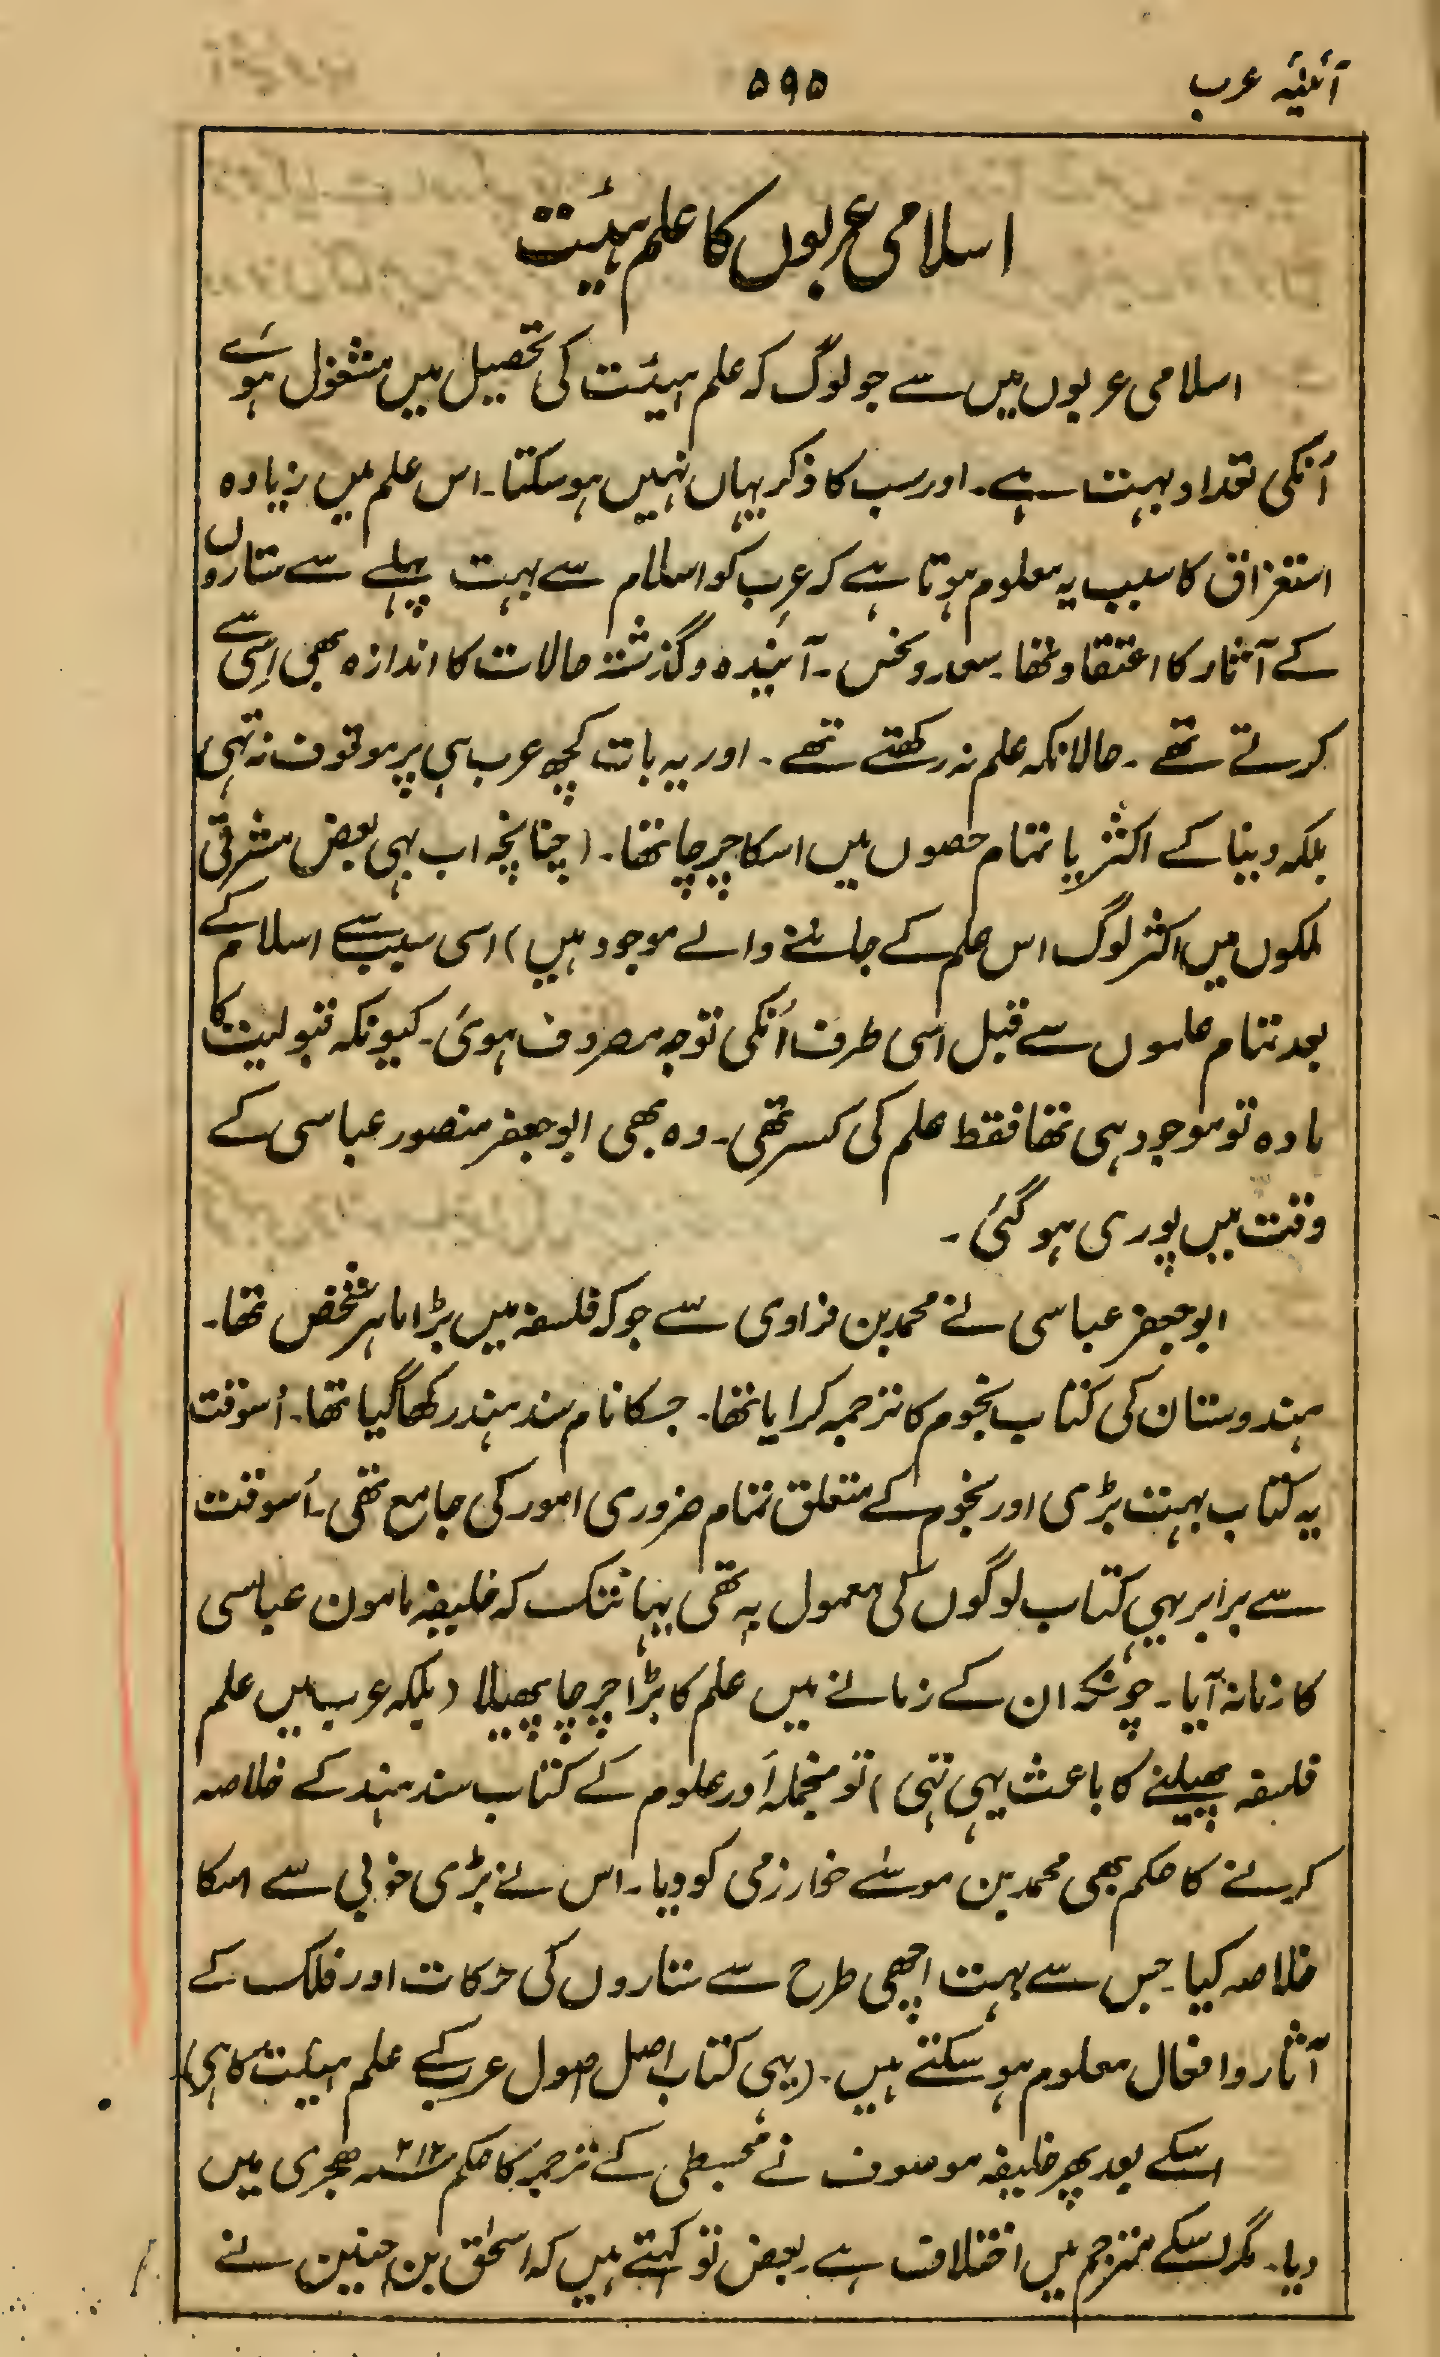 آئینہ عرب
۵۹۵
اسلامی عربوں کا علم ہئیت
اسلامی عربوں میں سے جو لوگ کہ علم ہیئت کی تحصیل میں مشغول ہوے
اُنکی تعداد بہت ہے۔ اور سب کا ذکر یہاں نہیں ہو سکتا۔ اس علم میں زیادہ
استغراق کا سبب یہ معلوم ہوتا ہے کہ عرب کو اسلام سے بہت پہلے سے ستاروں
کے آثار کا اعتقاد تھا۔ سعد و نحس۔ آیندہ و گذشتہ حالات کا اندازہ بھی اِسی سے
کرتے تھے۔ حالانکہ علم نہ رکھتے تھے۔ اور یہ بات کچھ عرب ہی پر موقوف نہ تہی
بلکہ دنیا کے اکثر یا تمام حصوں میں اسکا چرچا تھا۔ (چنانچہ اب بہی بعض مشرقی
ملکوں میں اکثر لوگ اس علم کے جاننے والے موجود ہیں) اسی سبب سے اسلام کے
بعد تمام علموں سے قبل اسی طرف اُنکی توجہ مصروف ہوئی۔ کیونکہ قبولیت کا
مادہ تو موجود ہی تھا فقط علم کی کسر تھی۔ وہ بھی ابو جعفر منصور عباسی کے
وقت میں پوری ہو گئی۔
ابو جعفر عباسی نے محمد بن فزاوی سے جو کہ فلسفہ میں بڑا ماہر شخص تھا۔
ہندوستان کی کتاب نجوم کا ترجمہ کرایا تھا۔ جسکا نام سند ہند رکھا گیا تھا۔ اُسوقت
یہ کتاب بہت بڑی اور نجوم کے متعلق تمام ضروری امور کی جامع تھی۔ اُسوقت
سے برابر یہی کتاب لوگوں کی معمول بہ تھی یہانتک کہ خلیفہ مامون عباسی
کا زمانہ آیا۔ چونکہ ان کے زمانے میں علم کا بڑا چرچا پھیلا (بلکہ عرب میں علم
فلسفہ پھیلنے کا باعث یہی تہی) تو منجملہ اَور علوم کے کتاب سند ہند کے خلاصہ
کرنے کا حکم بھی محمد بن موسے خوارزمی کو دیا۔ اس نے بڑی خوبی سے اسکا
خلاصہ کیا۔ جس سے بہت اچھی طرح سے ستاروں کی حرکات اور فلک کے
آثار و افعال معلوم ہو سکتے ہیں۔ (یہی کتاب اصل اصول عرب کے علم ہیئت کا ہی)
اسکے بعد پھر خلیفہ موسوف نے مجسطی کے ترجمہ کا حکم ۲۱۲؁ ہجری میں
دیا۔ مگر اسکے مترجم میں اختلاف ہے۔ بعض تو کہتے ہیں کہ اسحٰق بن حنین نے